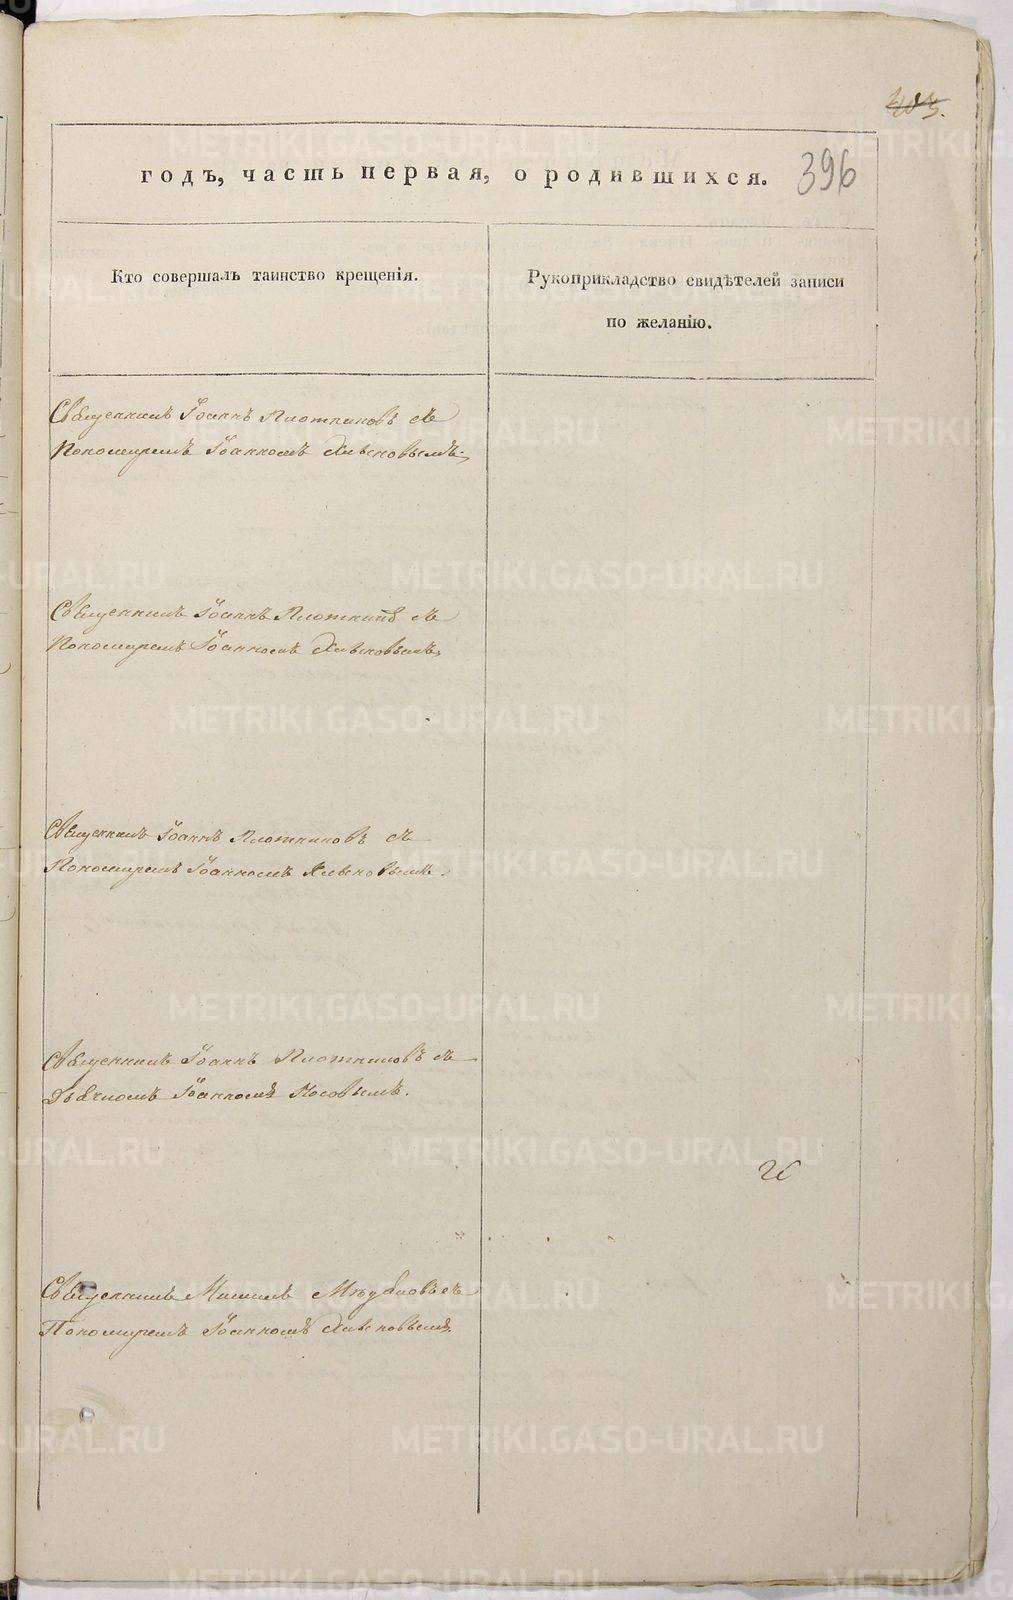 403.
396
годъ, часть первая, о родившихся.
Кто совершалъ таинство крещенія.
Рукоприкладство свидѣтелей записи
по желанію.
Священникъ Іоаннъ Плотниковъ съ
Пономаремъ Іоанномъ
Священникъ Іоаннъ Плотниковъ съ
Пономаремъ Іоанномъ
Священникъ Іоаннъ Плотниковъ съ
Пономаремъ Іоанномъ
Священникъ Іоаннъ Плотниковъ съ
Дьячкомъ Іоанномъ Носовымъ.
Священникъ съ
Пономаремъ Іоанномъ
METRIKI.GASO-URAL.RU